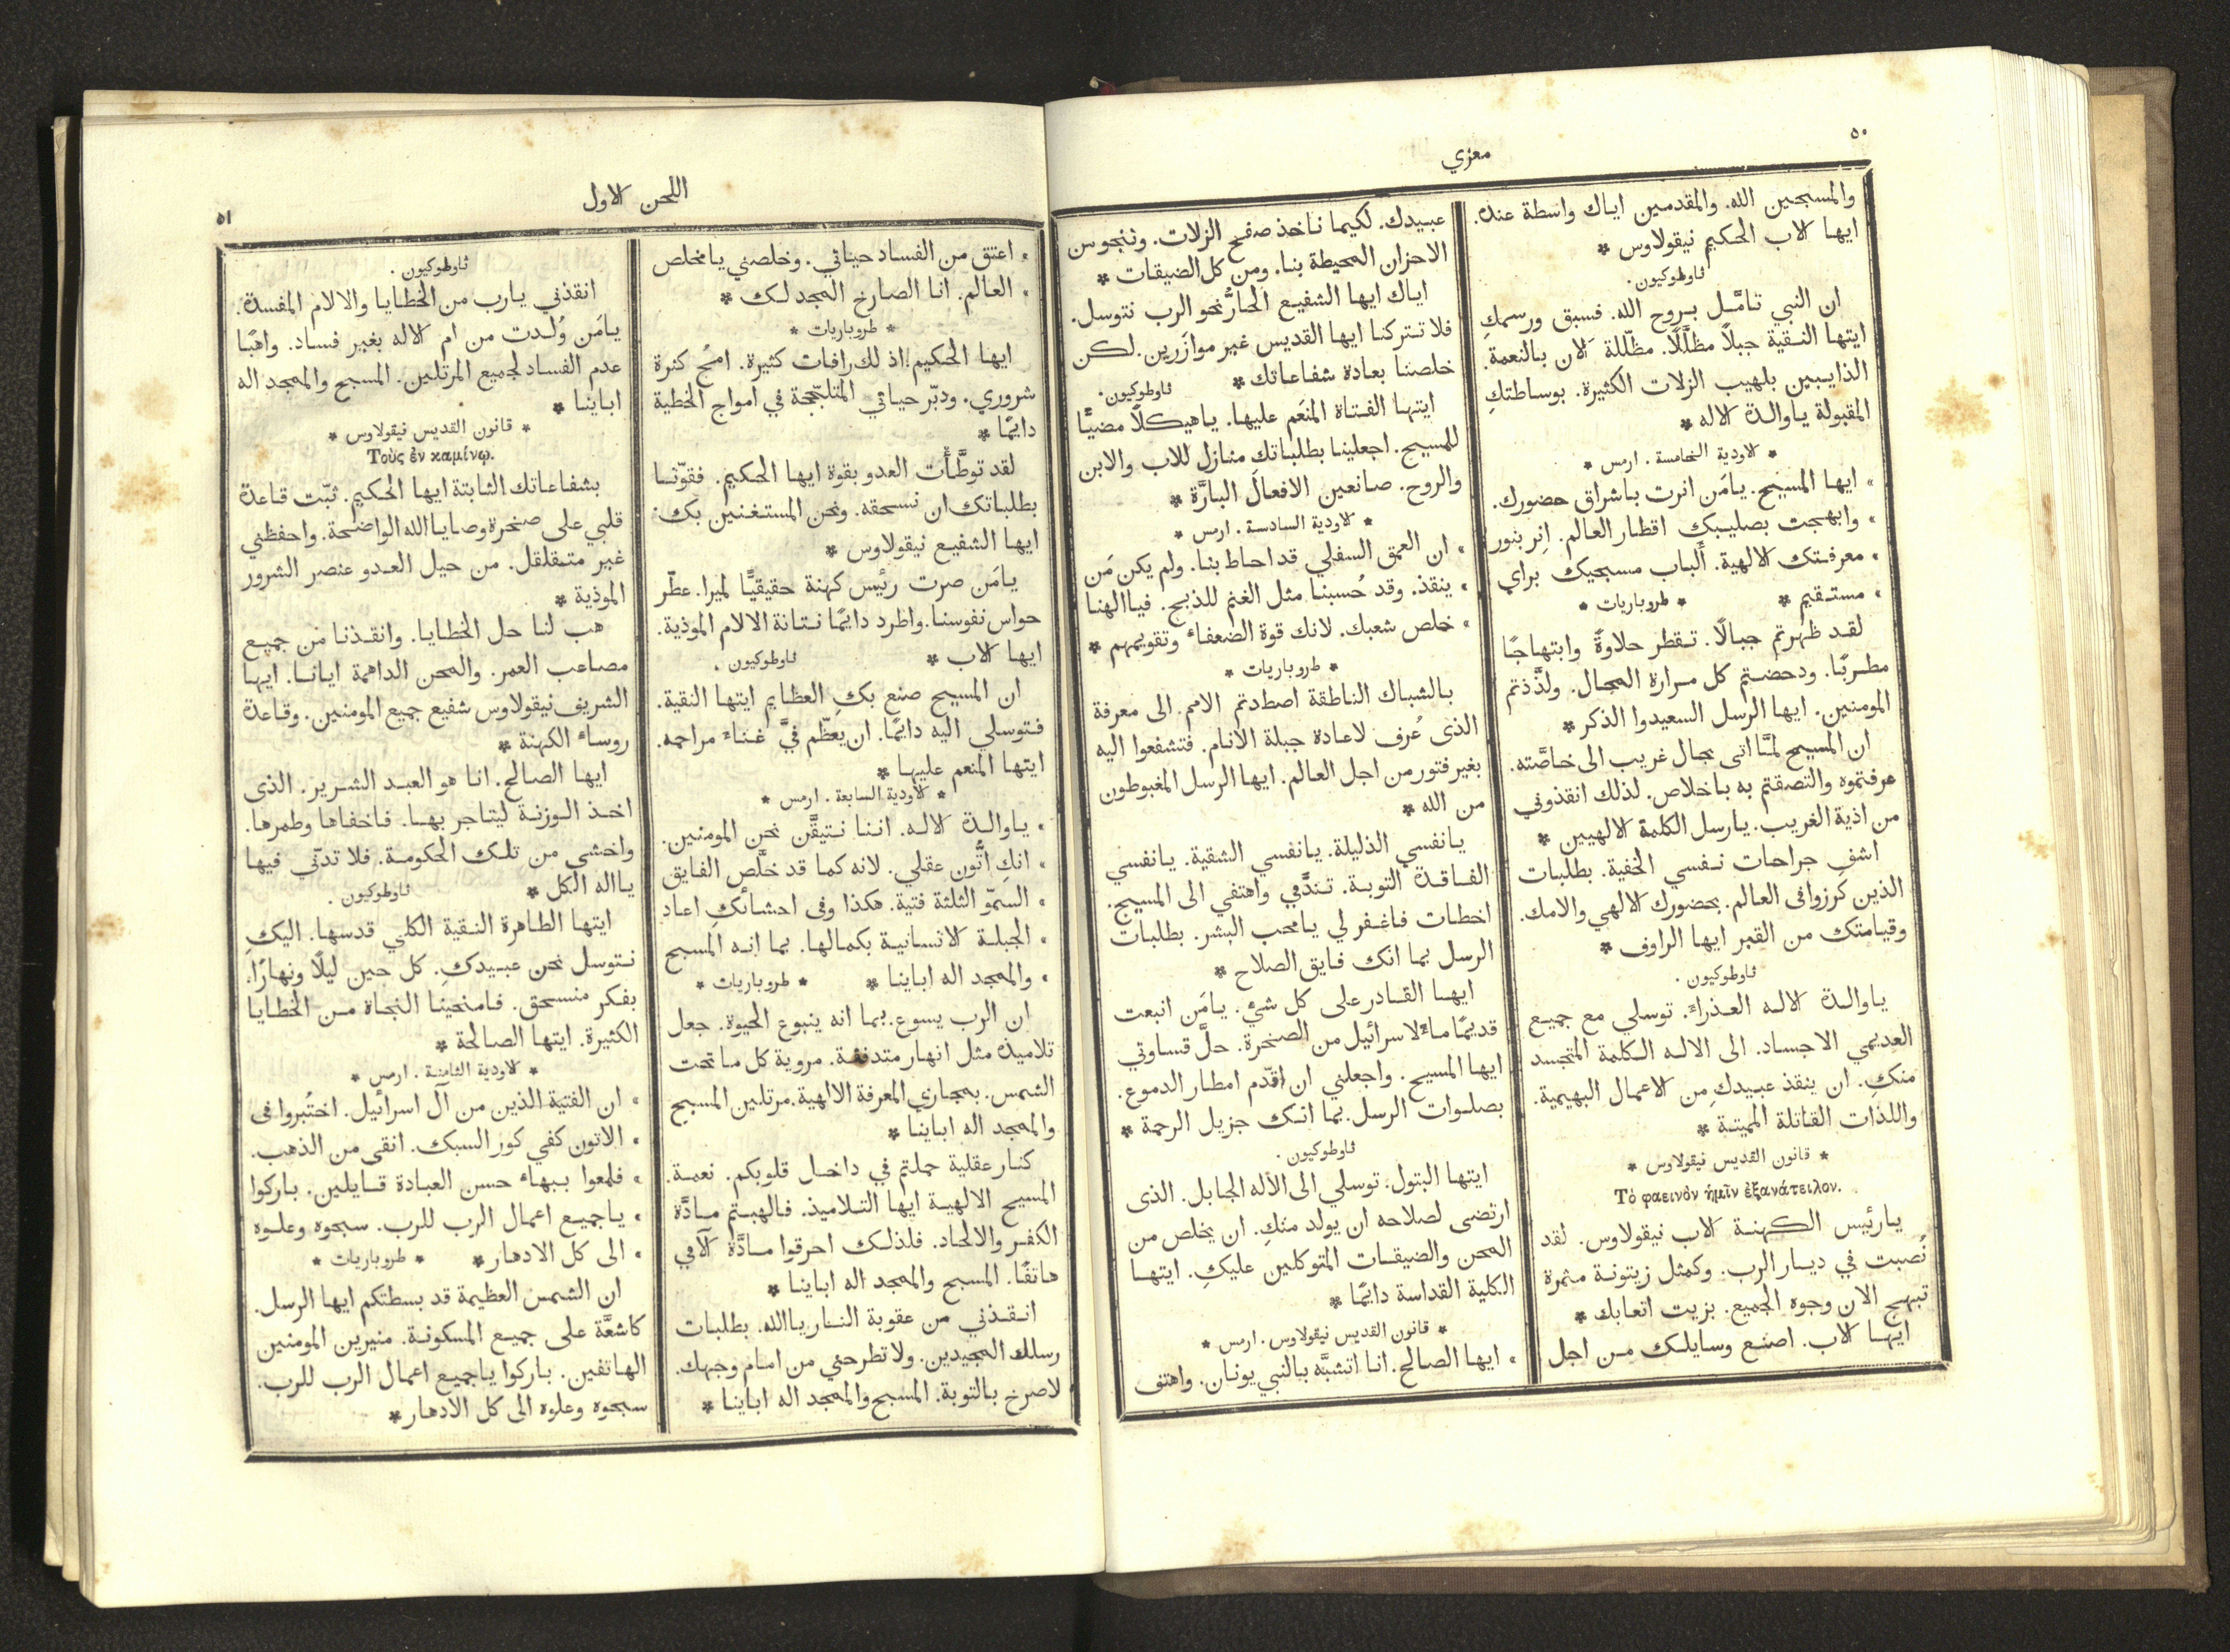 ٥٠
معزي
والمسبحين الله. والمقدمين اياك واسطة عنده.
ايها الاب الحكيم نيقولاوس *
ثاوطوكيون.
ان النبي تامَّل بروح الله. فسبق ورسمكِ
ايتها النقية جبلاً مظلَّلاً. مظلّلة الان بالنعمة.
الذايبين بلهيب الزلات الكثيرة. بوساطتكِ
المقبولة ياوالدة الاله *
* الاودية الخامسة . ارمس *
» ايها المسيح. يامَن انرت باشراق حضورك.
» وابهجت بصليبك اقطار العالم. اِنِر بنور
» معرفتك الالهية. ألباب مسبحيك براي
» مستقيم * * طروباريات *
لقد ظهرتم جبالًا. تقطر حلاوةً وابتهاجًا
مطربًا. ودحضتم كل مرارة المحال. ولذَّذتم
المومنين. ايها الرسل السعيدوا الذكر *
ان المسيح لمَّا اتى بحال غريب الى خاصَّته.
عرفتموه والتصقتم به باخلاص. لذلك انقذوني
من اذية الغريب. يارسل الكلمة الالهيين *
اشفِ جراحات نفسي الخفية. بطلبات
الذين كرزوا فى العالم. بحضورك الالهي والامك.
وقيامتك من القبر ايها الراوف *
ثاوطوكيون.
ياوالدة الاله العذراء. توسلي مع جميع
العديمي الاجساد. الى الاله الكلمة المتجسد
منكِ. ان ينقذ عبيدكِ من الاعمال البهيمية.
واللذات القاتلة المميتة *
* قانون القديس نيقولاوس *
Τὸ φαεινὸν ἡμῖν ἐξανάτειλον.
يارئيس الكهنة الاب نيقولاوس. لقد
نُصبت في ديار الرب. وكمثل زيتونة مثمرة
تبهج الان وجوه الجميع. بزيت اتعابك *
ايها الاب. اصنع وسايلك من اجل
عبيدك. لكيما ناخذ صفح الزلات. وننجو من
الاحزان المحيطة بنا. ومن كل الضيقات *
اياك ايها الشفيع الحارُّ نحو الرب نتوسل.
فلا تتركنا ايها القديس غير موازَرين. لكن
خلصنا بعادة شفاعاتك * ثاوطوكيون.
ايتها الفتاة المنعَم عليها. ياهيكلًا مضيًّا
للمسيح. اجعلينا بطلباتكِ منازل للاب والابن
والروح. صانعين الافعال البارَّة *
* الاودية السادسة . ارمس *
» ان العمق السفلي قد احاط بنا. ولم يكن مَن
» ينقذ. وقد حُسبنا مثل الغنم للذبح. فيا الهنا
» خلص شعبك. لانك قوة الضعفاء وتقويمهم *
* طروباريات *
بالشباك الناطقة اصطدتم الامم. الى معرفة
الذى عُرف لاعادة جبلة الانام. فتشفعوا اليه
بغير فتور من اجل العالم. ايها الرسل المغبوطون
من الله *
يانفسي الذليلة. يانفسي الشقية. يانفسي
الفاقدة التوبة. تندَّمي واهتفي الى المسيح.
اخطات فاغفر لي يامحب البشر. بطلبات
الرسل بما انك فايق الصلاح *
ايها القادر على كل شيٍ. يامَن انبعت
قديمًا ماءً لاسرائيل من الصخرة. حلَّ قساوتي
ايها المسيح. واجعلني ان اقدّم امطار الدموع.
بصلوات الرسل. بما انك جزيل الرحمة *
ثاوطوكيون.
ايتها البتول. توسلي الى الأله الجابل. الذى
ارتضى لصلاحه ان يولد منكِ. ان يخلص من
المحن والضيقات المتوكلين عليكِ. ايتها
الكلية القداسة دايمًا *
* قانون القديس نيقولاوس. ارمس *
» ايها الصالح. انا اتشبَّه بالنبي يونان. واهتف
اللحن الاول
٥١
» اعتق من الفساد حياتي. وخلصني يامخلص
» العالم. انا الصارخ المجد لك *
* طروباريات *
ايها الحكيم. اذ لك رافات كثيرة. امحُ كثرة
شروري. ودبّر حياتي المتلجّجة في امواج الخطية
دايمًا *
لقد توطَّأت العدو بقوة ايها الحكيم. فقوّنا
بطلباتك ان نسحقه. ونحن المستغنين بك.
ايها الشفيع نيقولاوس *
يامَن صرت رئيس كهنة حقيقيًّا لميرا. عطّر
حواس نفوسنا. واطرد دايمًا نتانة الالام الموذية.
ايها الاب * ثاوطوكيون.
ان المسيح صنع بكِ العظايم ايتها النقية.
فتوسلي اليه دايمًا. ان يعظّم فيَّ غناء مراحمه.
ايتها المنعم عليها *
* الاودية السابعة . ارمس *
» ياوالدة الاله. اننا نتيقَّن نحن المومنين.
» انكِ اتُّون عقلي. لانه كما قد خلَّص الفايق
» السموّ الثلثة فتية. هكذا وفى احشائكِ اعاد
» الجبلة الانسانية بكمالها. بما انه المسبح
» والممجد اله اباينا * * طروباريات *
ان الرب يسوع. بما انه ينبوع الحيوة. جعل
تلاميذه مثل انهار متدفقة. مروية كل ما تحت
الشمس. بمجاري المعرفة الالهية. مرتلين المسبح
والممجد اله اباينا *
كنار عقلية حملتم في داخل قلوبكم. نعمة.
المسيح الالهية ايها التلاميذ. فالهبتم مادَّة
الكفر والالحاد. فلذلك احرقوا مادَّة الآمي
هاتفًا. المسبح والممجد اله اباينا *
انقذني من عقوبة النار ياالله. بطلبات
رسلك المجيدين. ولا تطرحني من امام وجهك.
لاصرخ بالتوبة. المسبح والممجد اله اباينا *
ثاوطوكيون.
انقذني يارب من الخطايا والالام المفسدة.
يامَن وُلدت من ام الاله بغير فساد. واهبًا
عدم الفساد لجميع المرتلين. المسبح والممجد اله
اباينا *
* قانون القديس نيقولاوس *
Τοὺς ἐν καμίνῳ.
بشفاعاتك الثابتة ايها الحكيم. ثبّت قاعدة
قلبي على صخرة وصايا الله الواضحة. واحفظني
غير متقلقل. من حيل العدو عنصر الشرور
الموذية *
هب لنا حل الخطايا. وانقذنا من جميع
مصاعب العمر. والمحن الداهمة ايانا. ايها
الشريف نيقولاوس شفيع جميع المومنين. وقاعدة
روساء الكهنة *
ايها الصالح. انا هو العبد الشرير. الذى
اخذ الوزنة ليتاجر بها. فاخفاها وطمرها.
واخشى من تلك الحكومة. فلا تدنّي فيها
يااله الكل * ثاوطوكيون.
ايتها الطاهرة النقية الكلي قدسها. اليكِ
نتوسل نحن عبيدكِ. كل حين ليلًا ونهارًا.
بفكر منسحق. فامنحينا النجاة من الخطايا
الكثيرة. ايتها الصالحة *
* الاودية الثامنة . ارمس *
» ان الفتية الذين من آل اسرائيل. اختُبروا فى
» الاتون كفي كور السبك. انقى من الذهب.
» فلمعوا ببهاء حسن العبادة قايلين. باركوا
» ياجميع اعمال الرب للرب. سبحوه وعلوه
» الى كل الادهار * * طروباريات *
ان الشمس العظيمة قد بسطتكم ايها الرسل.
كاشعَّة على جميع المسكونة. منيرين المومنين
الهاتفين. باركوا ياجميع اعمال الرب للرب.
سبحوه وعلوه الى كل الادهار *